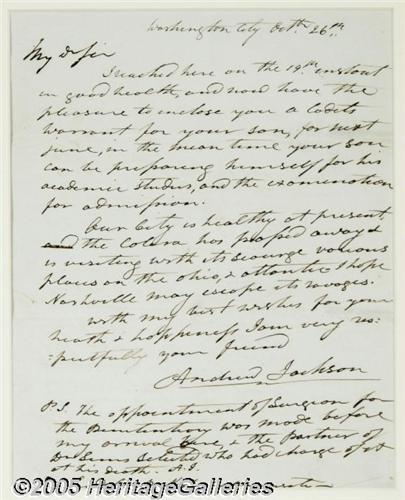 Washington City Octbr 26th
My D Sir
I reached here on the 19th instant
in good health, and now have the
pleasure to enclose you a Cadets
warrant for your son, for next
June, in the mean time your son
can be preparing himself for his
academic studies, and the examination
for admission.
Our City is healthy at present,
and the Colera has passed away &
is visiting with its scourge various
places on the ohio, & atlantic I hope
Nashville may escape its ravages.
with my best wishes for your
heath & happiness I am very res-
pectfully your friend
Andrew Jackson
P.S. The appointment of Surgeon for
the Penitentiary was made before
my arrival here, & the Partner of
Dr Sims selected who had charge of it
at his death. A.J.
©2005 HeritageGalleries